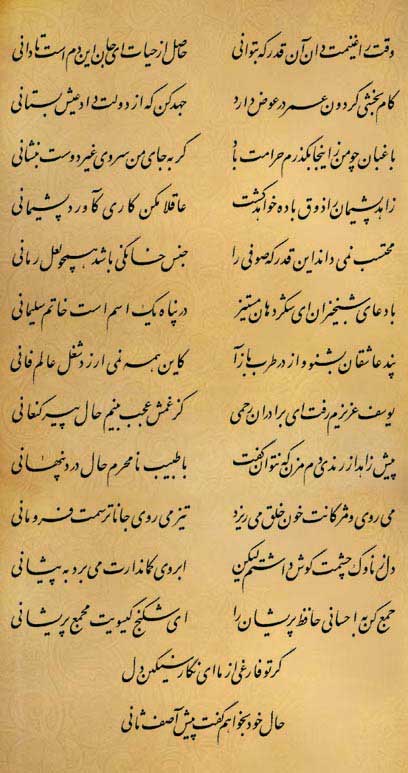 وقت را غنیمت دان آن قدر که بتوانی حاصل از حیات ای جان این دم است تا دانی
کام بخشی گردون عمر در عوض دارد جهد کن که از دولت داد عیش بستانی
باغبان چو من زاینجا بگذرم حرامت باد گر به جای من سروی غیر دوست بنشانی
زاهد پشیمان را ذوق باده خواهد کشت عاقلا مکن کاری کآورد پشیمانی
محتسب نمی داند این قدر که صوفی را جنس خانگی باشد همچو لعل رمانی
با دعای شبخیزان ای شکردهان مستیز در پناه یک اسم است خاتم سلیمانی
پند عاشقان بشنو و از در طرب بازآ کاین همه نمی ارزد شغل عالم فانی
یوسف عزیزم رفت ای برادران رحمی کز غمش عجب بینم حال پیر کنعانی
پیش زاهد از رندی دم مزن که نتوان گفت با طبیب نامحرم حال درد پنهانی
می روی و مژگانت خون خلق می ریزد تیز می روی جانا ترسمت فرومانی
دل ز ناوک چشمت گوش داشتم لیکن ابروی کماندارت می برد به پیشانی
جمع کن به احسانی حافظ پریشان را ای شکنج گیسویت مجمع پریشانی
گر تو فارغی از ما ای نگار سنگین دل
حال خود بخواهم گفت پیش آصف ثانی